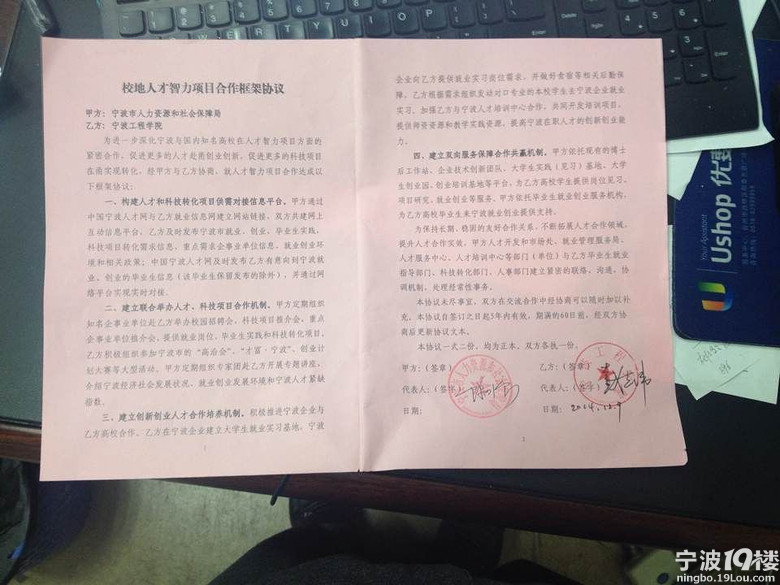 校地人才智力项目合作框架协议
甲方：宁波市人力资源和社会保障局
乙方：宁波工程学院
为进一步深化宁波与国内知名高校在人才智力项目方面的
紧密合作，促进更多的人才赴甬创业创新，促进更多的科技项目
在甬实现转化，经甲方与乙方协商，就人才智力项目合作达成以
下框架协议：
一、构建人才和科技转化项目供需对接信息平台。甲方通过
中国宁波人才网与乙方就业信息网建立网站链接，双方共建网上
互动信息平台。乙方及时发布宁波市就业、创业、毕业生实践、
科技项目转化需求信息，重点需求企事业单位信息，就业创业环境
和相关政策；中国宁波人才网及时发布乙方有意向到宁波就
业、创业的毕业生信息（该毕业生保留发布的除外），并通过网
络平台实现实时对接。
二、建立联合举办人才、科技项目合作机制。甲方定期组织
知名企事业单位赴乙方举办校园招聘会、科技项目推介会、重点
企事业单位推介会，提供就业岗位、毕业生实践和科技转化项目。
乙方积极组织参加宁波市的“高洽会”、“才富·宁波”、创业计
划大赛等大型活动。甲方定期组织专家团赴乙方开展专题讲座，
介绍宁波经济社会发展状况、就业创业发展环境和宁波人才紧缺
指数。
三、建立创新创业人才合作培养机制。积极推进宁波企业与
乙方高校合作。乙方在宁波企业建立大学生就业实习基地，宁波
1
企业向乙方提供就业实习岗位需求，并做好食宿等相关后勤保
障。乙方根据需求组织发动对口专业的本校学生去宁波企业就业
实习。加强乙方与宁波人才培训中心合作，共同开发培训项目，
提供师资资源和教学实践资源，提高宁波在职人才的创新创业能
力。
四、建立双向服务保障合作共赢机制。甲方依托现有的博士
后工作站、企业技术创新团队、大学生实践（见习）基地、大学
生创业园、创业培训基地等平台，为乙方高校学生提供岗位见习、
项目研究、就业创业等服务。甲方依托毕业生就业创业服务机构，
为乙方高校毕业生来宁波就业创业提供支持。
为保持长期、稳固的友好合作关系，不断拓展人才合作领域，
提升人才合作效益，甲方人才开发和市场处、就业管理服务局、
人才服务中心、人才培训中心等部门（单位）与乙方毕业生就业
指导部门、科技转化部门、人事部门建立紧密的联络、沟通、协
调机制，处理经常性事务。
本协议未尽事宜，双方在交流合作中经协商可以随时加以补
充。本协议自签订之日起5年内有效，期满的60日前，经双方协
商后更新协议文本。
本协议一式二份，均为正本，双方各执一份。
甲方：（签章） 乙方：（签章）
代表人：（签字） 代表人：（签字）
日期： 日期：2014.12.9
2
Your Apparent
Ushop 优
宁波19楼
ningbo.19Lou.com